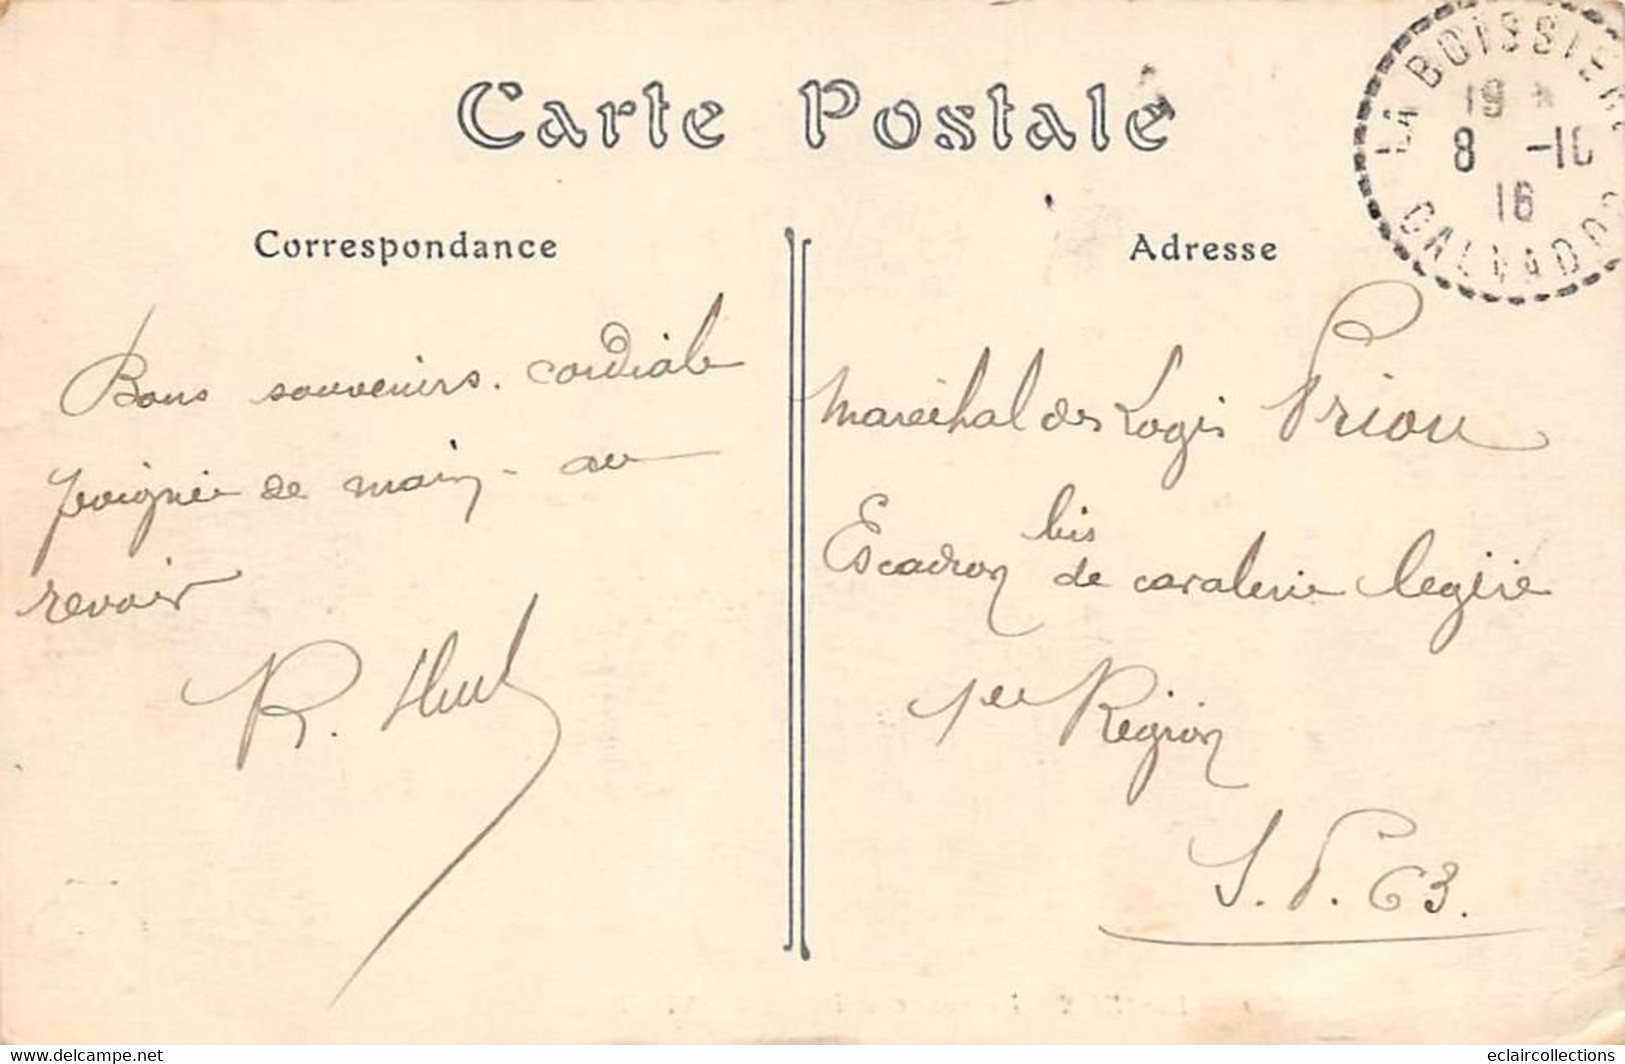 Carte Postale
Correspondance
Adresse
LA BOISSIERE
19
8 -10
16
CALVADOS
Bons souvenirs. cordiale
poignée de main - au
revoir
R.
Maréchal des Logis Priou
bis
Escadron de cavalerie legère
1ere Région
S. P. 63.
eclaircollections